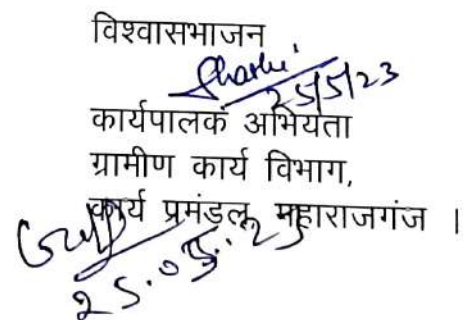 विश्वासभाजन
25/5/23
कार्यपालक अभियंता
ग्रामीण कार्य विभाग,
कार्य प्रमंडल, महाराजगंज ।
25.05.23